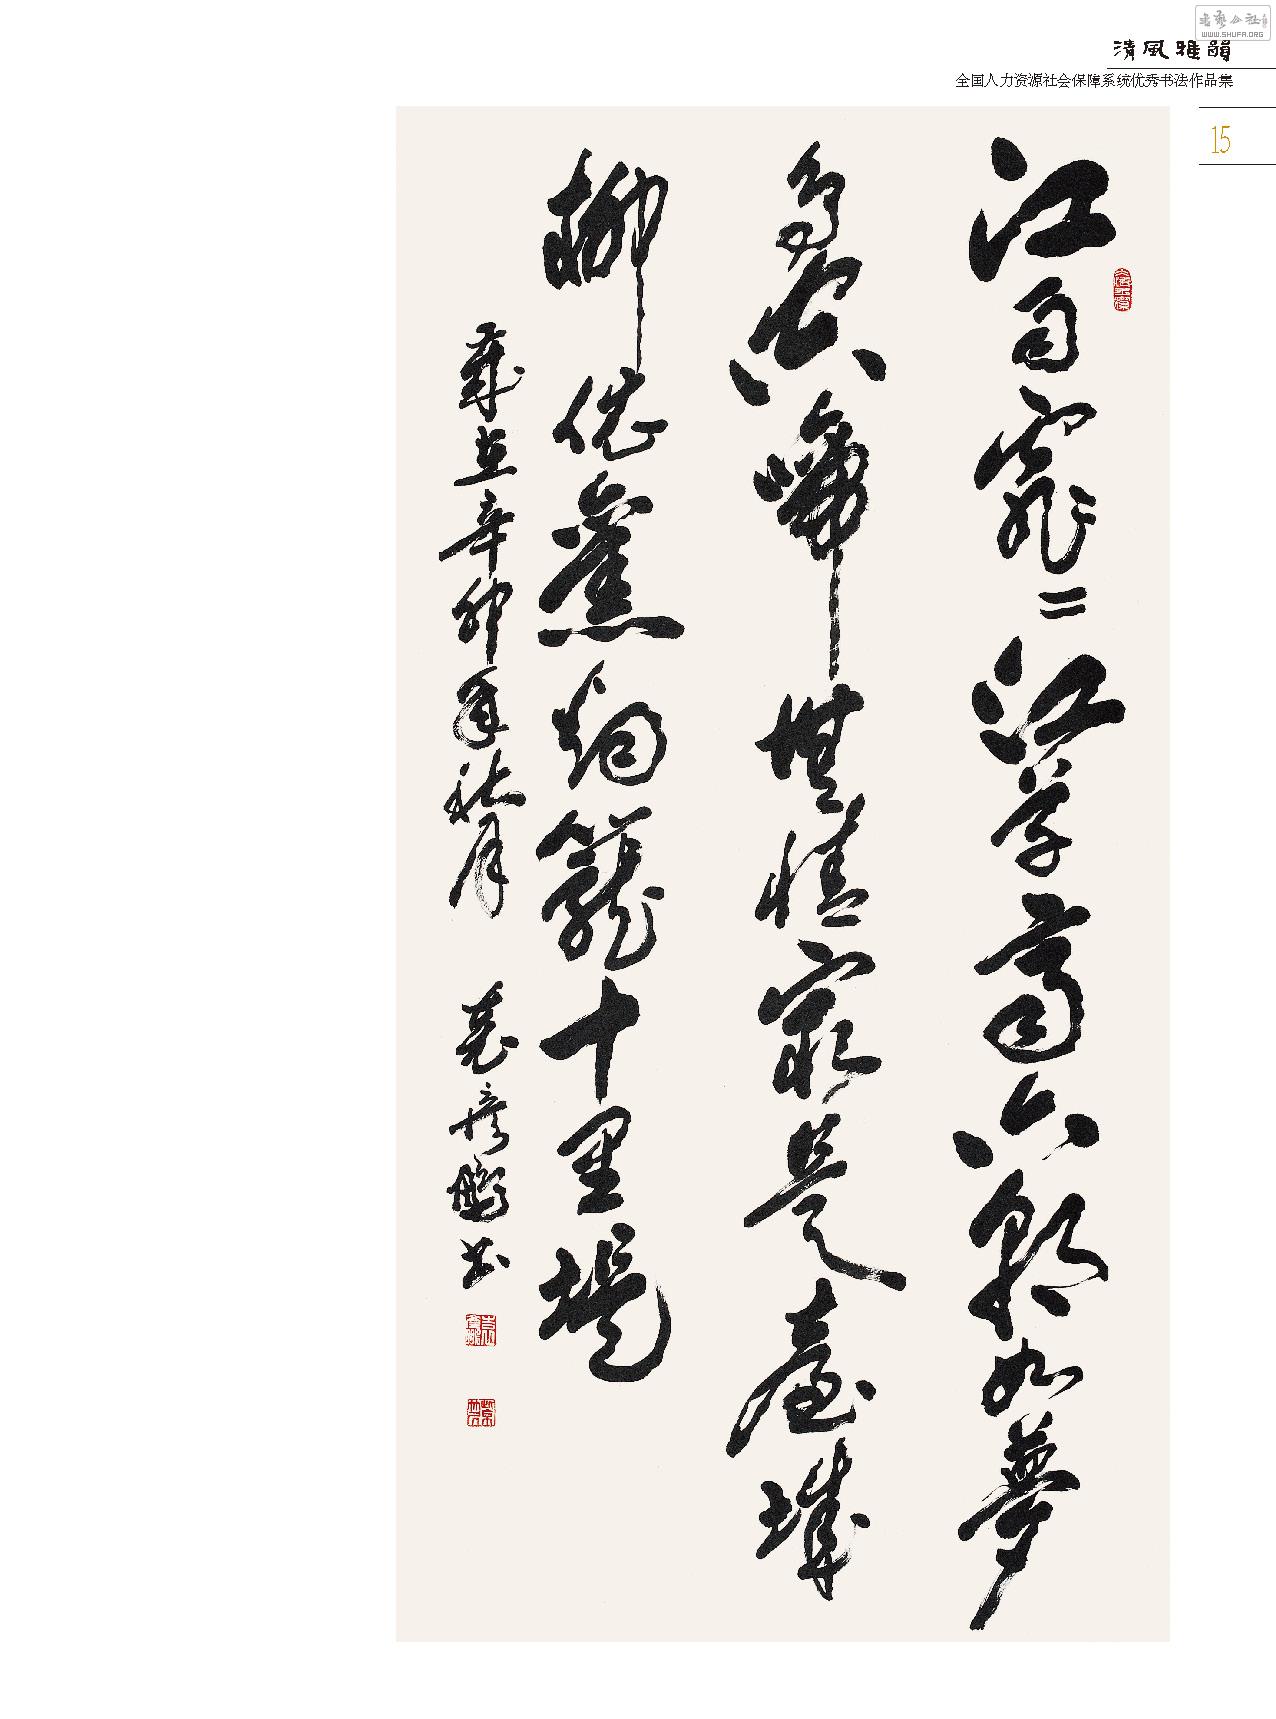 书艺公社
WWW.SHUFA.ORG
清風雅韻
全国人力资源社会保障系统优秀书法作品集
15
江雨霏〻江草齊六朝如夢
鳥空啼無情最是臺城
柳依舊烟籠十里堤
歲在辛卯年秋月 袁彦鵬书